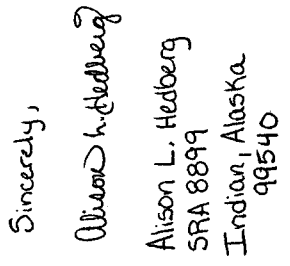 Sincerely,
Alison L. Hedberg
Alison L. Hedberg
SRA 8899
Indian, Alaska
99540